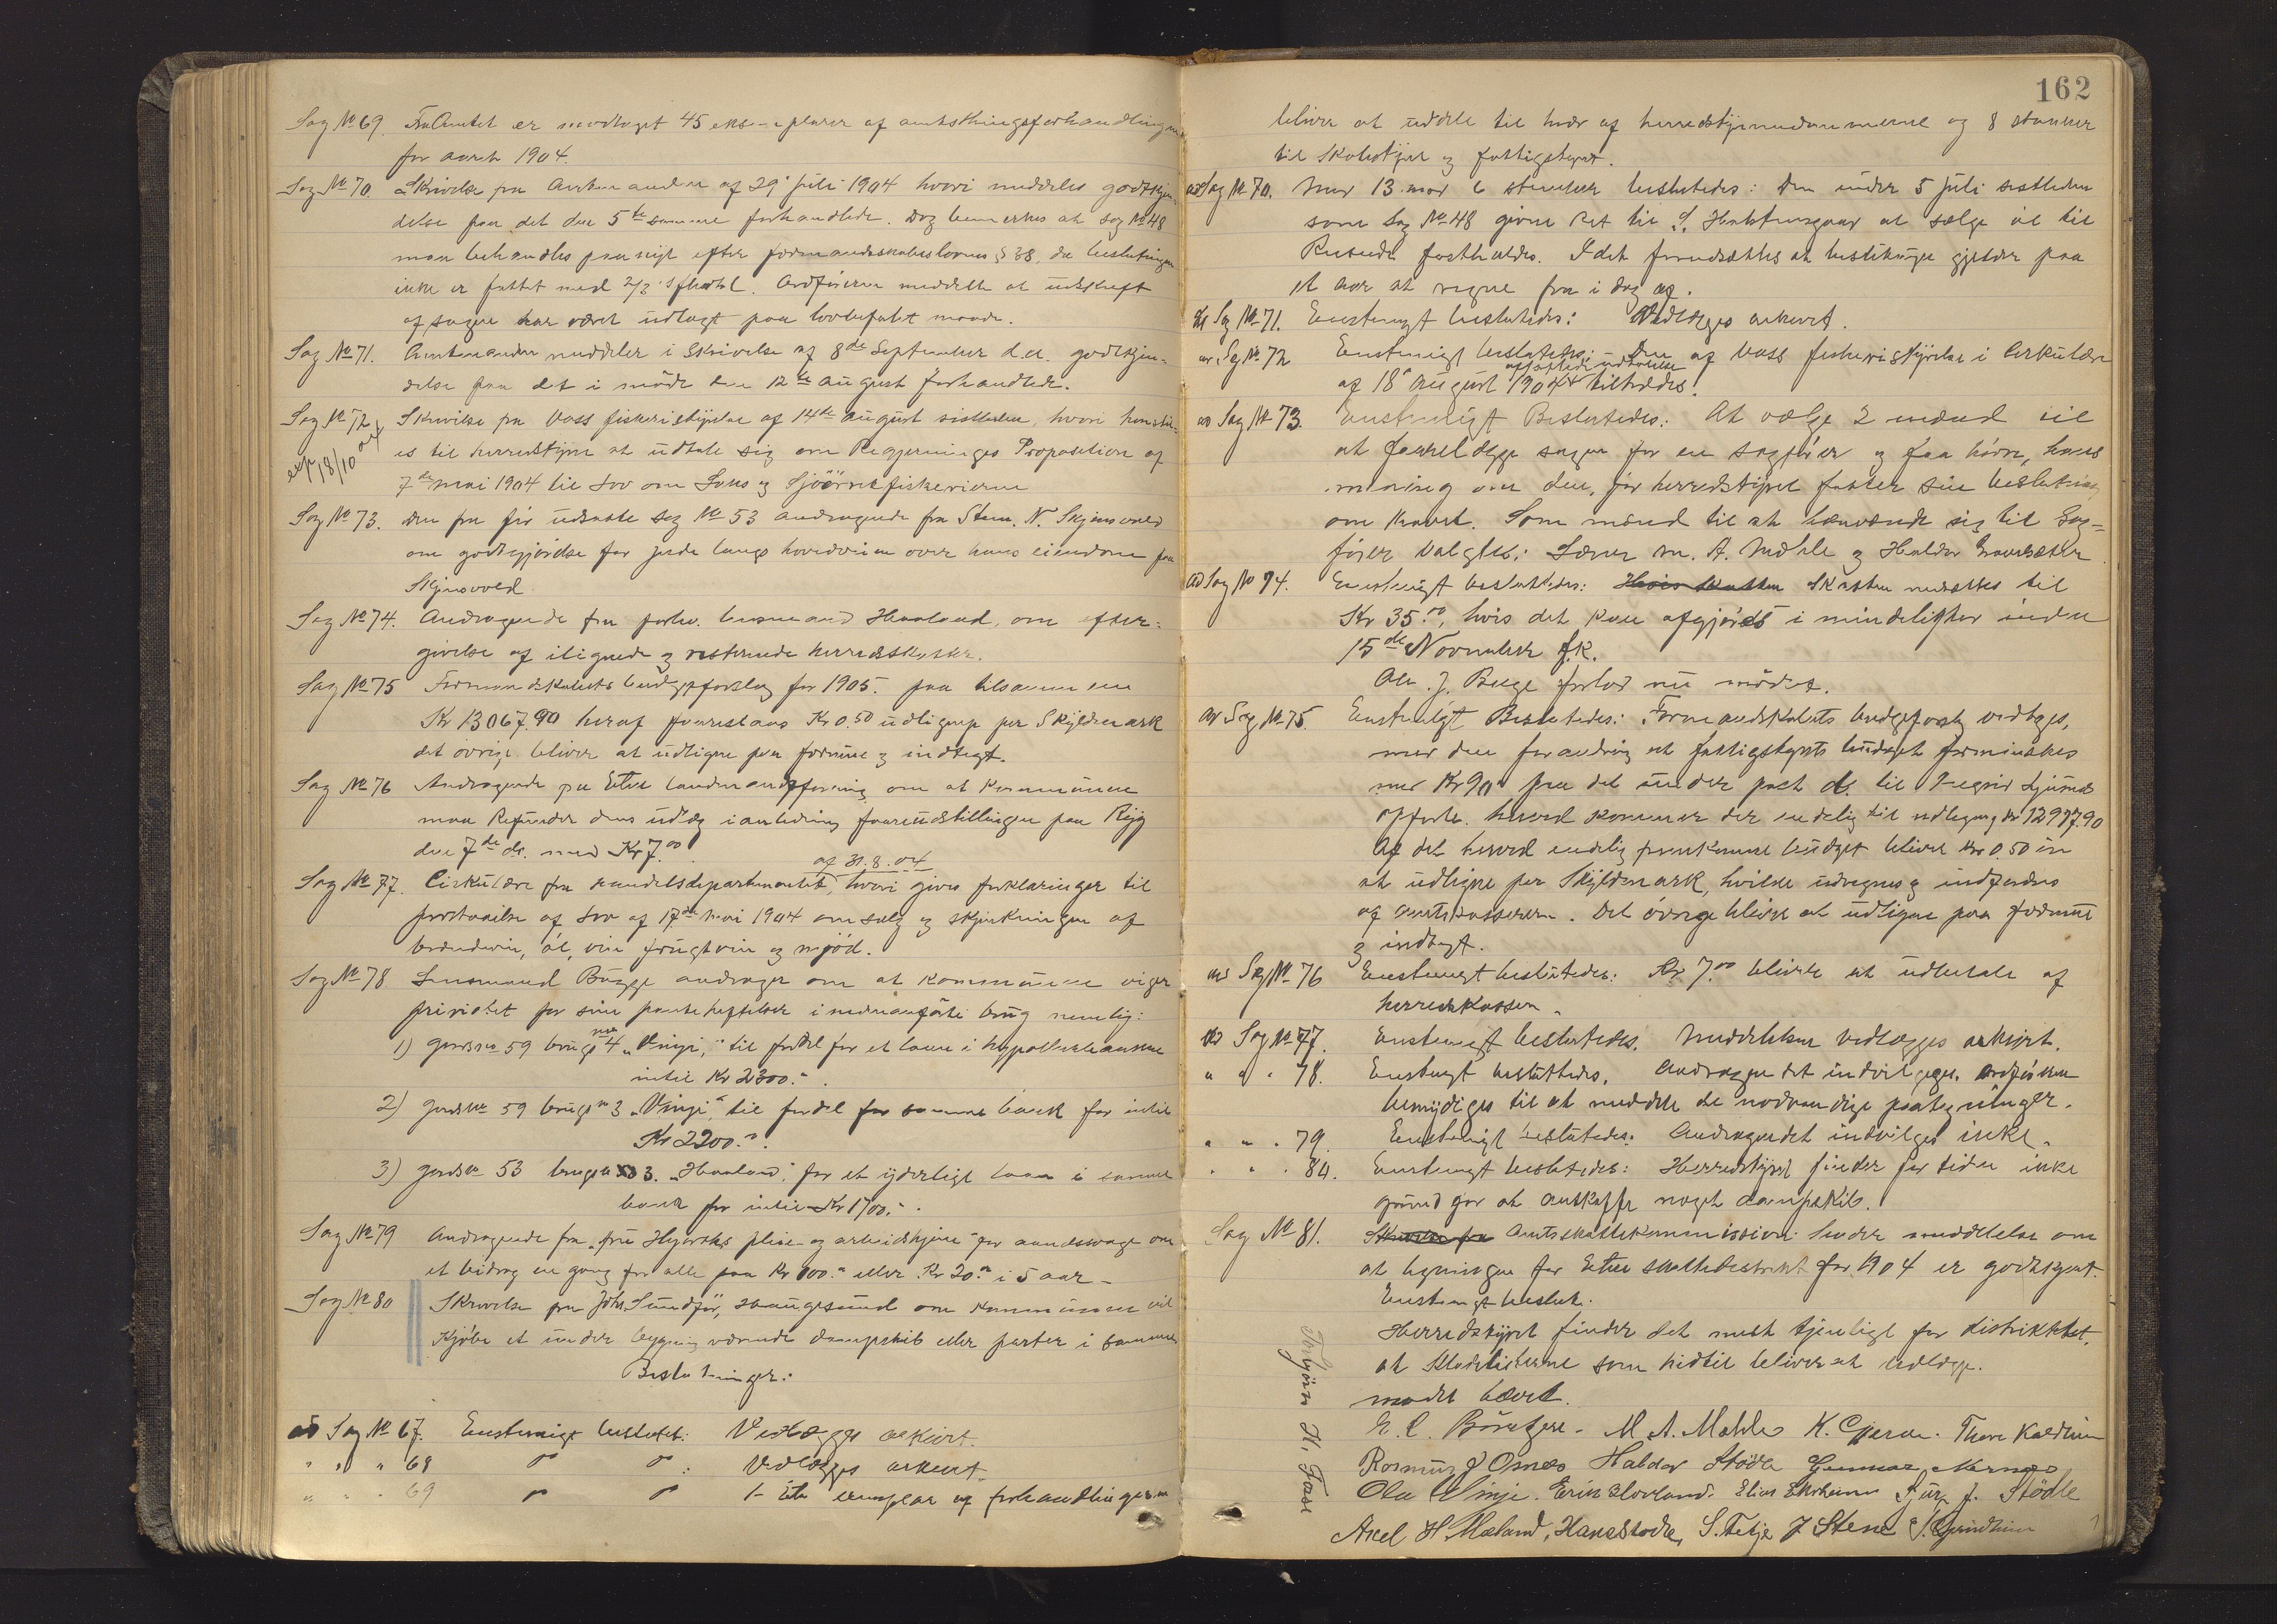 Sag № 69. Fra Amtet er modtaget 45 eksemplarer af amtsthingsforhandlingene
for aaret 1904.
Sag № 70. Skrivelse fra Amtmanden af 29de juli 1904 hvori meddeles godkjen-
delse paa det den 5te samme forhandlede. Dog bemerkes at sag № 48
maa behandles paa nyt efter formandsskabslovens § 38, da beslutningen
ikke er fattet med 2/3 flertal. Ordføreren meddelte at udskrift
af sagen har været udlagt paa lovbefalet maade.
Sag № 71. Amtmanden meddeler i Skrivelse af 8de September d.a. godkjen-
delse paa det i møde den 12te august forhandlede.
Sag № 72 Skrivelse fra Voss fiskeristyrelse af 14de august sidstleden, hvori henstil-
exp 18/10 04
es til herredstyret at udtale sig om Regjeringens Proposition af
7de mai 1904 til Lov om Laks og Sjøørretfiskerierne
Sag № 73. Den fra før udsatte sag № 53 andragende fra Sten. N. Skjensvold
om godtgjørelse for jorde langs hovedveien over hans eiendom paa
Skjensvold
Sag № 74. Andragende fra forhv. lensmand Haaland, om efter-
givelse af ilignede og resterende herredsskatter.
Sag № 75 Formandskabets budgetforslag for 1905. paa tilsammen
Kr 13067.90 heraf foreslaaes Kr 0.50 udlignet per Skyldmark
det øvrige bliver at udligne paa formue og indtægt.
Sag № 76 Andragende fra Etne landmandsforening om at kommunen
maa Refundere dens udlæg i anledning faareudstillingen paa Rygg
den 7de ds. med Kr 7.00
af 31.8.04
Sag № 77. Cirkulære fra handelsdepartementet, hvori gives forklaringer til
forstaaelse af Lov af 17de mai 1904 om salg og skjænkningen af
brændevin, øl, vin frugtvin og mjød.
Sag № 78 Lensmand Bugge andrager om at kommunen viger
prioritet for sine pantheftelser i nedenanførte brug nemlig:
1) gaardsno 59 brugsno 4 "Vinje," til fordel for et laan i hypothekbanken
intil Kr 2300.-
2) gaardsno 59 brugsno 3 "Vinje," til fordel for samme bank for intil
Kr 2200.-
3) gaardsno 53 brugsno 3. "Haaland," for et yderligt laan i samme
bank for intil Kr 1700.-
Sag № 79 Andragende fra "fru pleie- og arbeidshjem" for aandssvage om
et bidrag en gang for alle paa Kr 100.- eller Kr 20.- i 5 aar -
Sag № 80 Skrivelse fra Johs. Sundfør, Haugesund om kommunen vil
Kjøbe et under bygning værende dampskib eller parter i samme
Beslutninger:
ad Sag № 67. Enstemigt besluttet: Vedlægges arkivet.
" " " 68 " " : Vedlægges arkivet.
" " " 69 " " 1 - Et exemplar af forhandlingerne
162
bliver at uddele til hver af herredstyrmedlemmerne og 8 stykker
til Skolestyret og fattigstyret.
ad Sag № 70. Med 13 mod 6 stemmer besluttedes: Den under 5 juli sidstleden
som Sag № 48 givne Ret til S. at sælge øl til
Reisende fastholdes. Idet forudsættes at bestillingen gjelder paa
et aar at regne fra i dag af.
ad Sag № 71. Enstemigt besluttedes: Vedlægges arkivet.
ad Sag № 72 Enstemigt besluttedes: - Den af Voss fiskeristyrelse i cirkulære
af 18de august 1904 udtalelse tiltrædes.
ad Sag № 73. Enstemigt Besluttedes: At vælge 2 mænd til
at forelægge sagen for en sagfører og faa høre, hans
mening om den, før herredstyret fatter sin beslutning
om kravet. Som mænd til at henvende sig til Sag-
fører valgtes: Lærer M. A. Mæhle og Haldor
ad Sag № 74. Enstemigt besluttedes: Hvis skatten Skatten nedsættes til
Kr 35.00, hvis det kan afgjøres i mindelighed inden
15de November f.k.
J. Bugge forlod nu mødet.
ad Sag № 75. Enstemigt Besluttedes: Formandskabets budgetforslag vedtages,
med den forandring at fattigstyrets budget formindskes
med Kr 90.- paa det under post til
opførte. hvorved kommer der endelig til udligning Kr 12977.90
Af det herved endelig fremkomne budget bliver Kr 0.50 øre
at udligne per Skyldmark, hvilke udregnes og indfordres
af amtskassereren. Det øvrige bliver at udligne paa formue
og indtægt.
ad Sag № 76 Enstemigt besluttedes: Kr 7.00 bliver at udbetale af
herredskassen.
ad Sag № 77. Enstemigt besluttedes. Meddelelsen vedlægges arkivet.
" " " 78. Enstemigt besluttedes. Andragendet indvilges. ordføreren
bemyndiges til at meddele de nødvendige paategninger.
" " " 79. Enstemigt besluttedes: Andragendet indvilges ikke.
" " " 80. Enstemigt besluttedes: Herredstyret finder for tiden ikke
grund for at anskaffe noget dampskib.
Sag № 81. Skrivelse fra Amtsskattekommissionen sender meddelelse om
at ligningen for Etne skattedistrikt for 1904 er godkjent.
Enstemigt beslut.
Herredstyret finder det mest tjenligt for distriktet,
at Skatelisterne som hidtil bliver at udlægge.
mødet hævet.
Torbjørn H. Fosse
M. A. Mæhle K. Gjerde. Thore Kaldheim
Rasmus J Osnes Haldor Stødle Gunnar Nernæs
Ola Vinje. Erik Hovland. Elias Ekrheim Sjur J. Stødle
Axel H Mæland, Hans Stødle, S. Tetje J Stene Grindheim